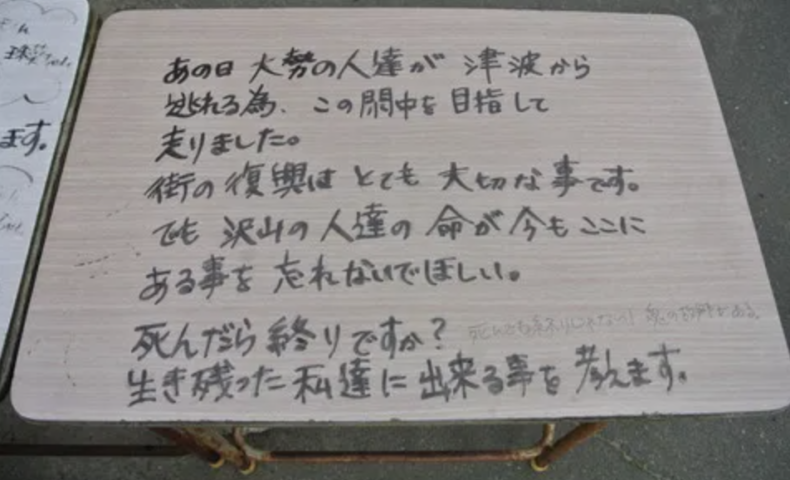 あの日 大勢の人達が 津波から
逃れる為、この閖中を目指して
走りました。
街の復興は とても 大切な事です。
でも 沢山の人達の 命が今もここに
ある事を 忘れないでほしい。
死んだら終りですか?
死んでも終りじゃない!
生き残った私達に出来る事を考えます。
ます。